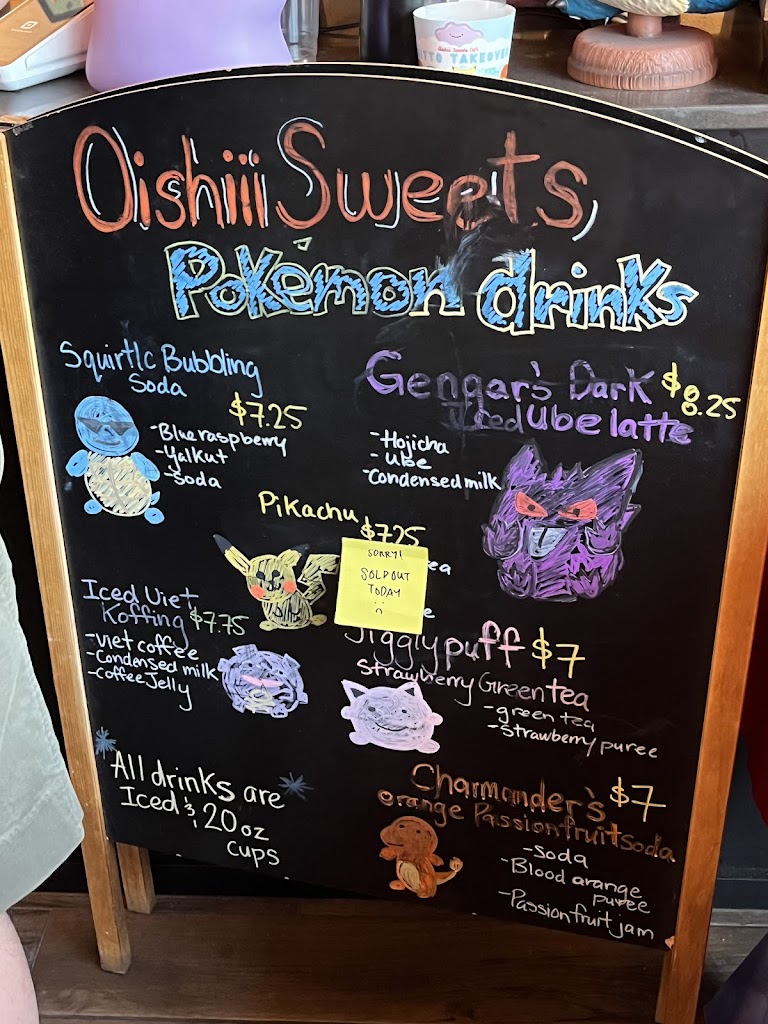 TTO TAKEOVER
Oishiii Sweets
Pokémon drinks
Squirtle Bubbling
Soda
$7.25
-Blue raspberry
-Yalkut
-Soda
Gengar's Dark $8.25
Iced Ube latte
-Hojicha
-Ube
-Condensed milk
Pikachu
$7.25
SORRY!
SOLD OUT
TODAY
:(
Iced Viet
Koffing $7.75
-Viet coffee
-Condensed milk
-Coffee Jelly
Jigglypuff $7
Strawberry Green tea
-green tea
-Strawberry puree
All drinks are
Iced & 20 oz
cups
Charmander's $7
orange Passionfruit soda
-Soda
-Blood arange
puree
-Passionfruit jam